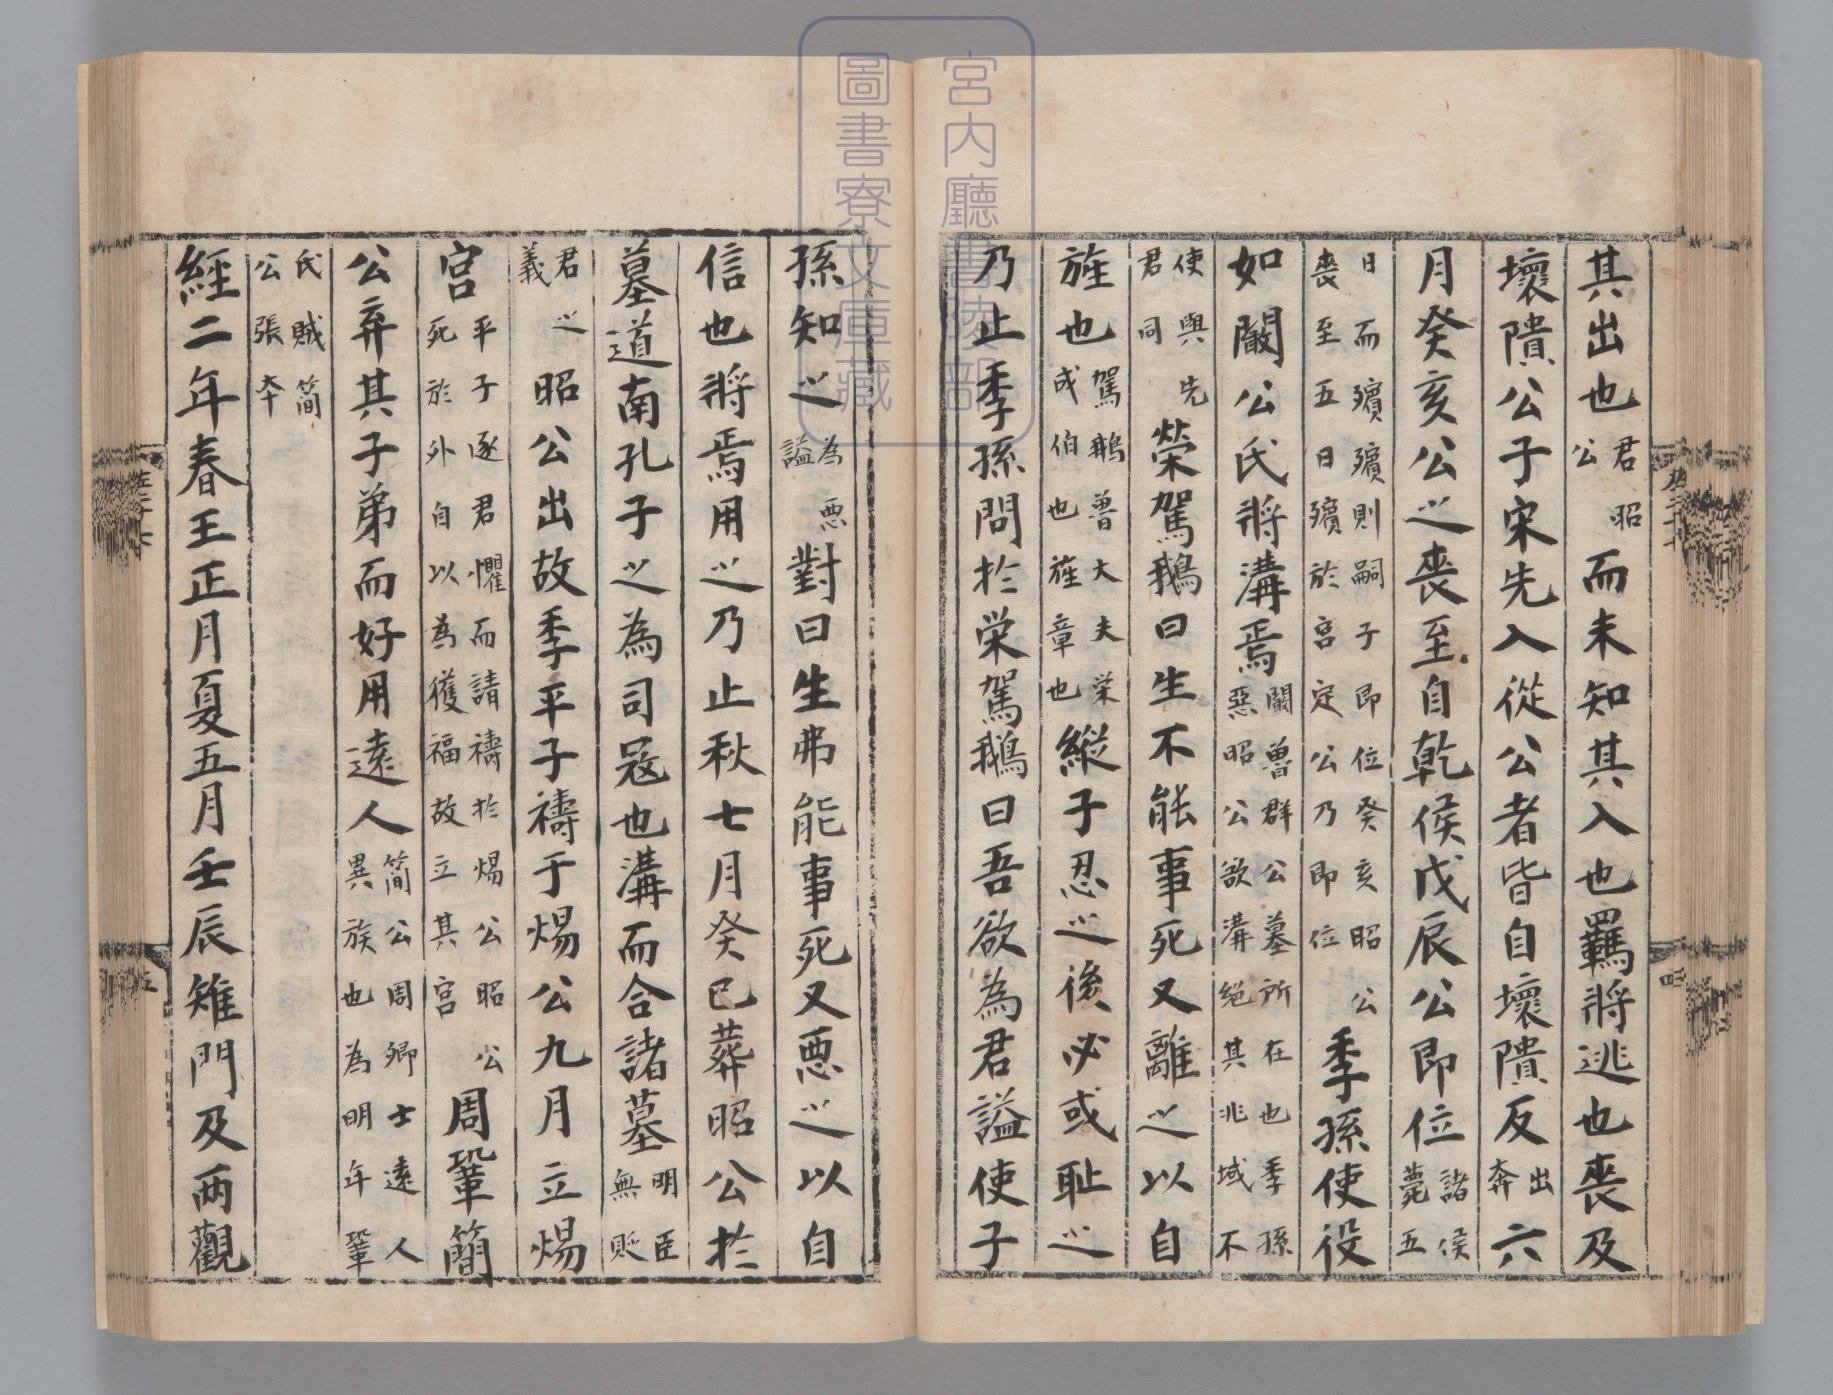 其出也君昭公而未知其入也羈將逃也喪及
壞隤公子宋先入從公者皆自壞隤反出奔六
月癸亥公之喪至自乾侯戊辰公即位諸侯薨五
日而殯殯則嗣子即位癸亥昭公喪至五日殯於宮定公乃即位季孫使役
如闞公氏將溝焉闞魯群公墓所在也季孫惡昭公欲溝絕其兆域不
使與先君同榮駕鵝曰生不能事死又離之以自
旌也駕鵝魯大夫栄成伯也旌章也縱子忍之後必或恥之
乃止季孫問於栄駕鵝曰吾欲為君謚使子
孫知之為惡謚對曰生弗能事死又惡之以自
信也將焉用之乃止秋七月癸巳葬昭公於
墓道南孔子之為司寇也溝而合諸墓明臣無貶
君之義昭公出故季平子禱于煬公九月立煬
宮平子逐君懼而請禱於煬公昭公死於外自以為獲福故立其宮周鞏簡
公弃其子弟而好用遠人簡公周卿士遠人異族也為明年鞏
氏賊簡公張本
經二年春王正月夏五月壬辰雉門及兩觀
宮內廳書陵部
圖書寮文庫藏